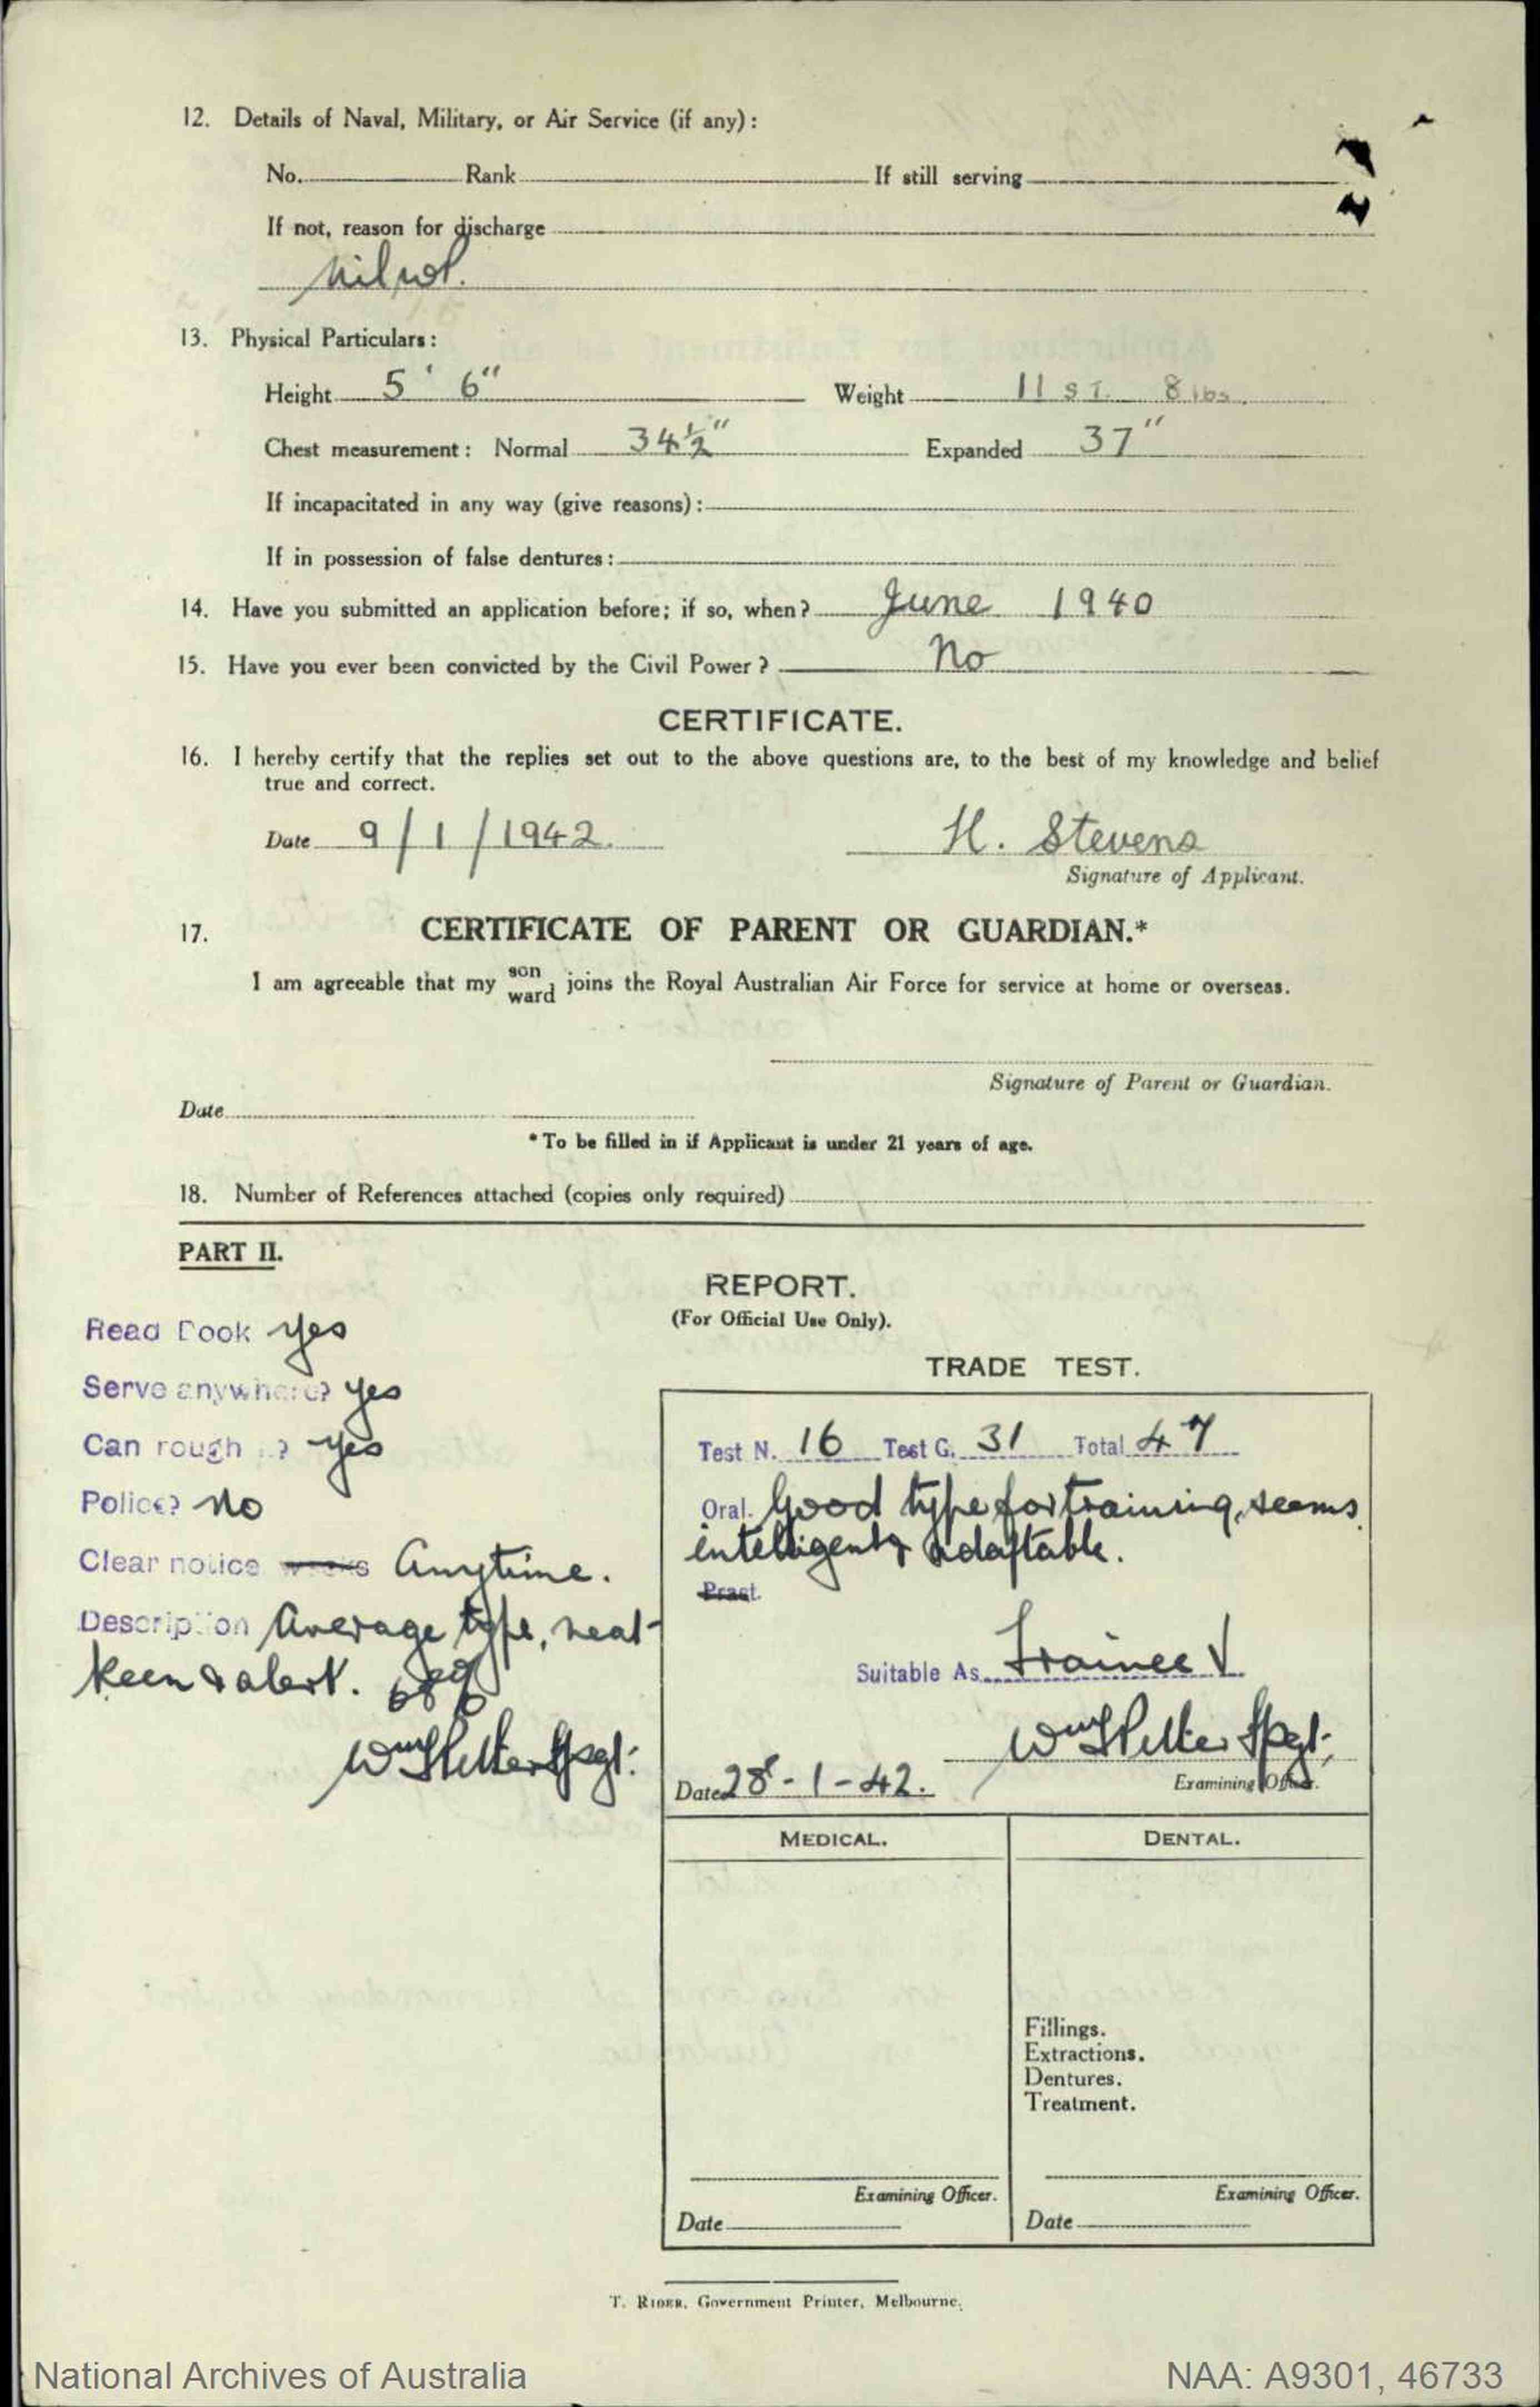 12. Details of Naval, Military, or Air Service (if any):
No. Rank If still serving
If not, reason for discharge
Nil
13. Physical Particulars:
Height 5' 6" Weight 11 ST. 8 lbs.
Chest measurement: Normal 34½" Expanded 37"
If incapacitated in any way (give reasons):
If in possession of false dentures:
14. Have you submitted an application before; if so, when? June 1940
15. Have you ever been convicted by the Civil Power? No
CERTIFICATE.
16. I hereby certify that the replies set out to the above questions are, to the best of my knowledge and belief
true and correct.
Date 9/1/1942. H. Stevens
Signature of Applicant.
17. CERTIFICATE OF PARENT OR GUARDIAN.*
I am agreeable that my son/ward, joins the Royal Australian Air Force for service at home or overseas.
Signature of Parent or Guardian.
Date
* To be filled in if Applicant is under 21 years of age.
18. Number of References attached (copies only required)
PART II.
REPORT.
(For Official Use Only).
Read Book yes
Serve anywhere? yes
Can rough ? yes
Police? No
Clear notice Anytime.
Description Average type, neat
keen & alert.
TRADE TEST.
Test N. 16 Test G. 31 Total 47
Oral. Good type for training, seems
intelligent & adaptable.
Pract.
Suitable As Trainee
Sgt.
Sgt.
Date 28-1-42. Examining Officer.
MEDICAL. DENTAL.
Fillings.
Extractions.
Dentures.
Treatment.
Examining Officer. Examining Officer.
Date Date
T. RIDER, Government Printer, Melbourne.
National Archives of Australia NAA: A9301, 46733